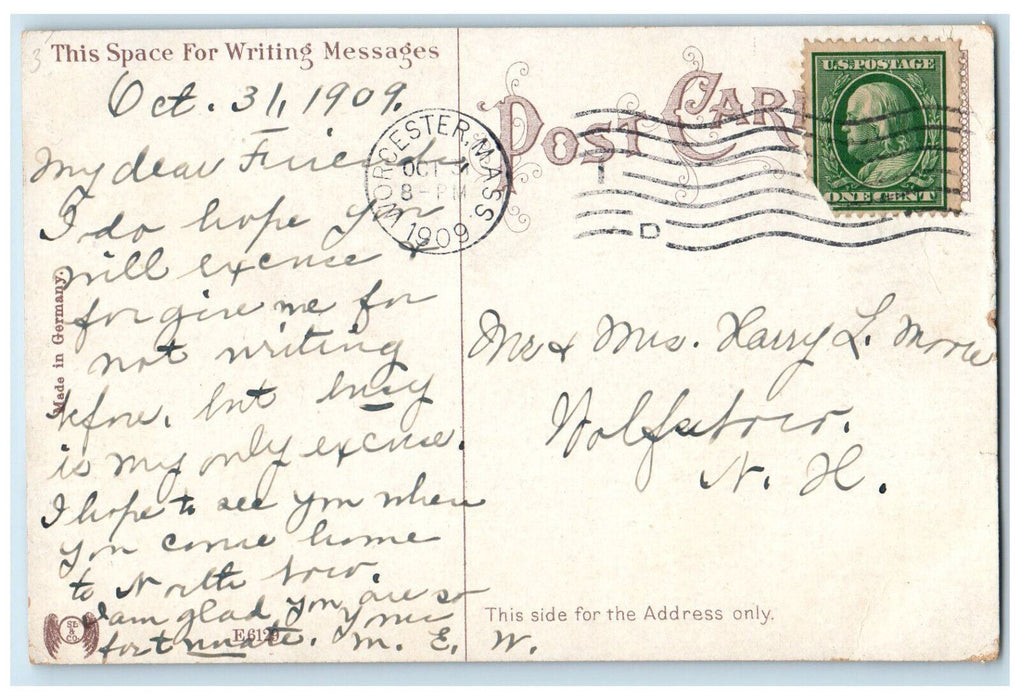 This Space For Writing Messages
Oct. 31, 1909.
My dear Friends
I do hope you
will excuse &
forgive me for
not writing
before, but busy
is my only excuse.
I hope to see you when
you come home
to North
I am glad you are so
fortunate. Yours
M. E. W.
Made in Germany.
SB & CO.
E6129
POST CARD
WORCESTER, MASS.
OCT 31
8-PM
1909
D
U.S. POSTAGE
ONE CENT
Mr & Mrs. Harry L. Moore
N. H.
This side for the Address only.
3